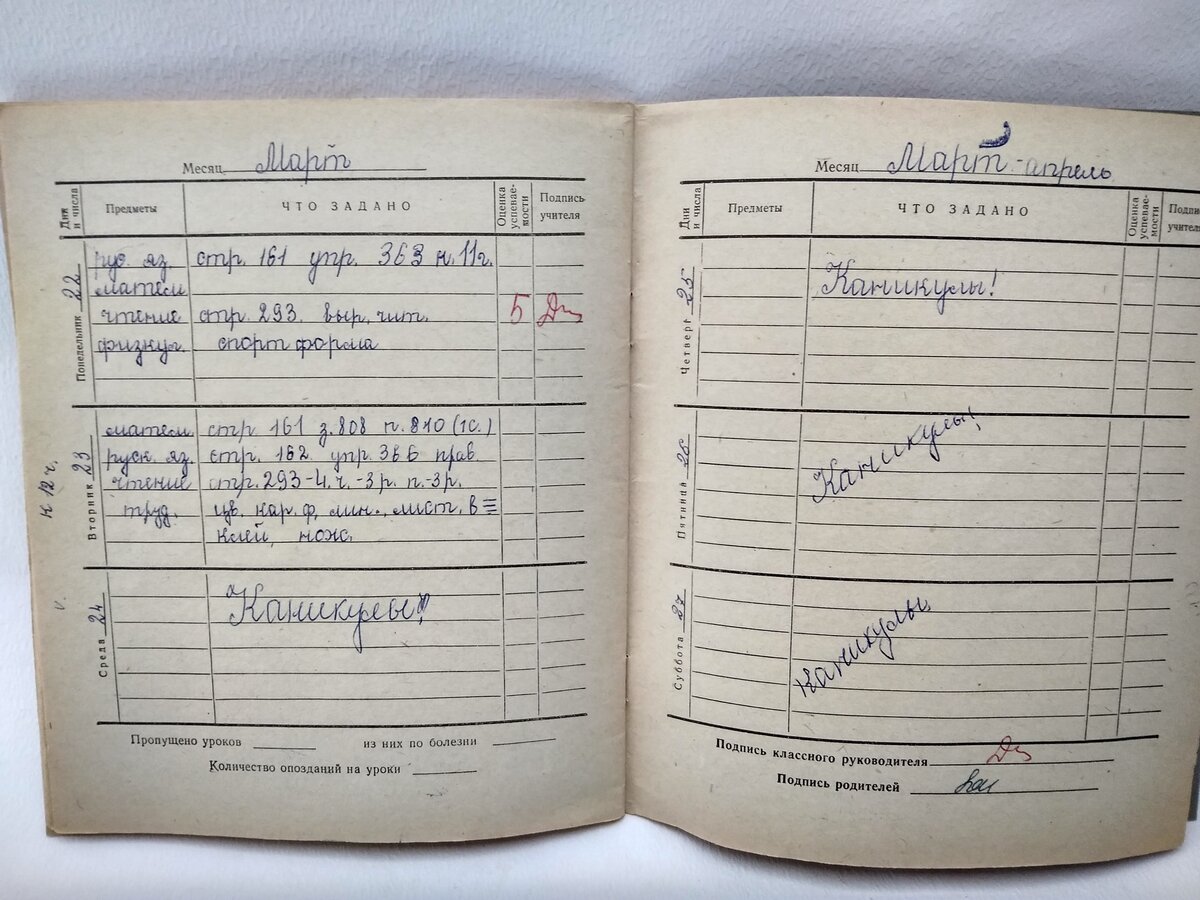 Месяц Март
Дни и числа Предметы ЧТО ЗАДАНО Оценка успевае-мости Подпись учителя
Понедельник 22
рус. яз. стр. 161 упр. 363 п. 11г.
матем
чтение стр. 293. выр. чит. 5
физкул спорт форма
к 12 ч.
Вторник 23
матем. стр 161 з. 808 п. 810 (1с.)
руск. яз. стр. 162 упр. 366 прав.
чтение стр. 293-4. ч. -3р. п.-3р.
труд. цв. кар. ф, лин., лист. в
клей, нож.
Среда 24
Каникулы!
Пропущено уроков из них по болезни
Количество опозданий на уроки
Месяц Март - апрель
Дни и числа Предметы ЧТО ЗАДАНО Оценка успевае-мости Подпи учителя
Четверг 25
Каникулы!
Пятница 26
Каникулы!
Суббота 27
Каникулы
Подпись классного руководителя
Подпись родителей